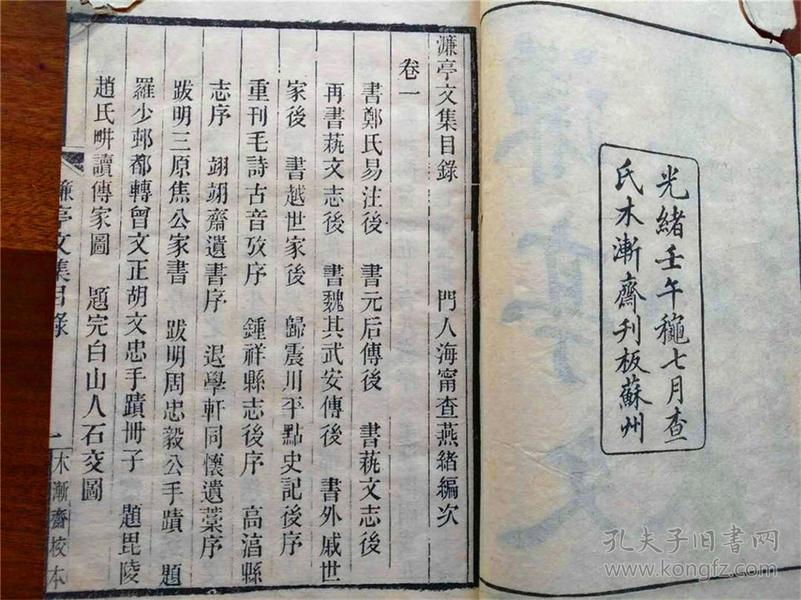 光緒壬午龝七月查
氏木漸齋刊板蘇州
濂亭文集目錄 門人海甯查燕緒編次
卷一
書鄭氏易注後 書元后傳後 書蓺文志後
再書蓺文志後 書魏其武安傳後 書外戚世
家後 書越世家後 歸震川平點史記後序
重刊毛詩古音攷序 鍾祥縣志後序 高淯縣
志序 翊翊齋遺書序 退學軒同懷遺藁序
跋明三原焦公家書 跋明周忠毅公手蹟 題
羅少邨都轉曾文正胡文忠手蹟冊子 題毘陵
趙氏畊讀傳家圖 題完白山人石交圖
濂亭文集目錄
一
木漸齋校本
孔夫子旧书网
www.kongfz.com